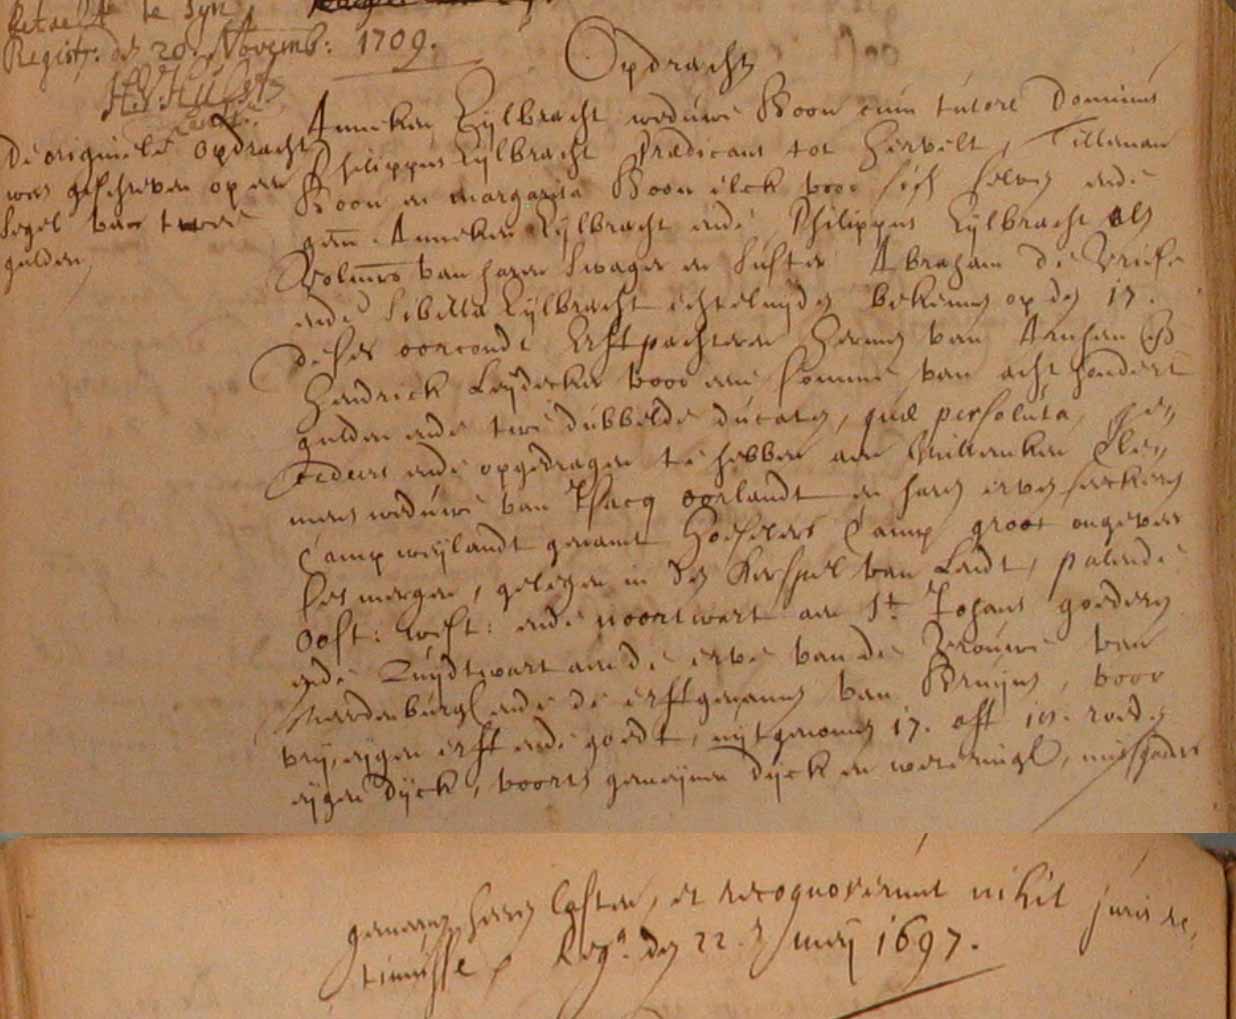 te syn
Registr: den 20. Novemb: 1709.
Opdracht
De originele opdracht
was geschreven op een
segel van twee
gulden
Anneken Eylbracht weduwe Boon cum tutore Dominus
Philippus Eylbracht Predicant tot Hervelt, Tilleman
Boon en Margarita Boon elck voor sich selven ende
gem. Anneken Eylbracht ende Philippus Eylbracht als
Volmrs van haren Swager en Suster Abraham de Vriese
ende Sibilla Eylbracht echteluyden bekennen op den 17.
deses oorconde Erffpachteren Hermen van Arnhem en
Hendrick Leydecker voor een somme van acht hondert
gulden ende twe dubbelde ducaten, quae persoluta, ge„
cedeert ende opgedragen te hebben aen Willemken Cle„
mens weduwe van Isacq Oorlandt en haren erven seeckeren
Camp weylandt genaemt Camp groot ongeveer
ses mergen, gelegen in den Kerspel van Lendt, palende
Oost: West: ende noortwert aen St. Johans goederen
ende Zuydtwert aen de erve van de Vrouwe van
ende de erffgenamen van Bruyns, voor
vry, eygen erff ende goedt, uytgenomen 17. oft 18. roeden
eygen dyck, voorts gemeynen dyck en weteringh, mitsgaders
gemeynen heeren lasten, et recognoverunt nihil juris re„
tinuisse. Rega. den 22. May 1697.